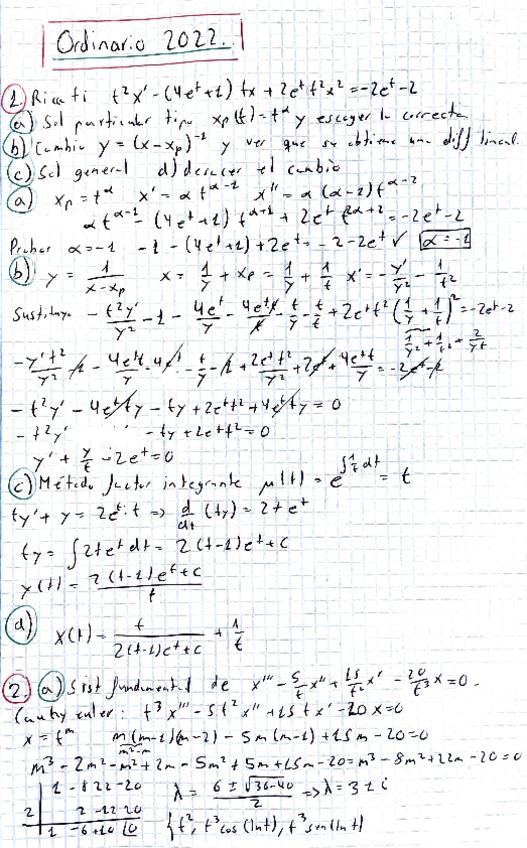 Ordinario 2022.
1. Ricati t²x' - (4eᵗ+1) tx + 2eᵗt²x² = -2eᵗ-2
a) Sol particular tipo xp(t)=t^α y escoger la correcta
b) Cambio y = (x-xp)⁻¹ y ver que se obtiene una diff lineal.
c) Sol general d) deshacer el cambio
a) xp = t^α x' = α t^(α-1) x'' = α(α-1)t^(α-2)
α t^(α+1) - (4eᵗ+1) t^(α+1) + 2eᵗ t^(2α+2) = -2eᵗ-2
Probar α=-1 -1 - (4eᵗ+1) + 2eᵗ = -2-2eᵗ ✓ α=-1
b) y = 1/(x-xp) x = 1/y + xp = 1/y + 1/t x' = -y'/y² - 1/t²
Sustituyo -t²y'/y² - 1 - 4eᵗt/y - 4eᵗt/t - t/y - t/t + 2eᵗt²(1/y + 1/t)² = -2eᵗ-2
1/y² + 1/t² + 2/yt
-y't²/y² - 1 - 4eᵗt/y - 4eᵗ - t/y - 1 + 2eᵗt²/y² + 2eᵗ + 4eᵗt/y = -2eᵗ-2
-t²y' - 4eᵗty - ty + 2eᵗt² + 4eᵗty = 0
-t²y' - ty + 2eᵗt² = 0
y' + y/t - 2eᵗ = 0
c) Método factor integrante μ(t) = e^(∫1/t dt) = t
ty' + y = 2eᵗ·t ⇒ d/dt (ty) = 2teᵗ
ty = ∫2teᵗdt = 2(t-1)eᵗ+c
y(t) = (2(t-1)eᵗ+c)/t
d) x(t) = t/(2(t-1)eᵗ+c) + 1/t
2. a) Sist fundamental de x''' - 5/t x'' + 15/t² x' - 20/t³ x = 0.
Cauchy euler: t³x''' - 5t²x'' + 15tx' - 20x = 0
x = t^m m(m-1)(m-2) - 5m(m-1) + 15m - 20 = 0
m²-m
m³ - 2m² - m² + 2m - 5m² + 5m + 15m - 20 = m³ - 8m² + 22m - 20 = 0
1 -8 22 -20 λ = (6 ± √(36-40))/2 ⇒ λ = 3 ± i
2 2 -12 20
1 -6 +10 0 {t², t³cos(lnt), t³sen(lnt)